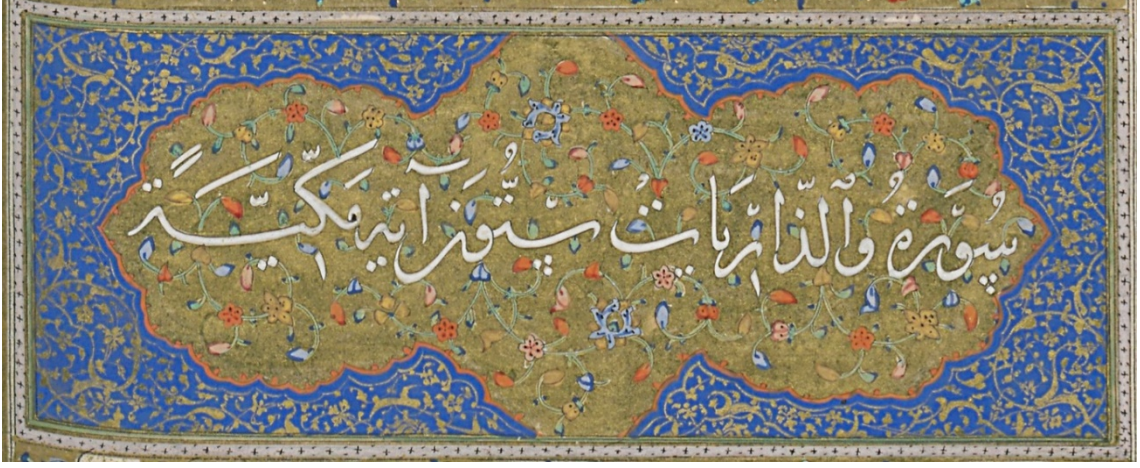 سُورَةُ وَالذَّارِيَاتْ سِتُّونَ آيَة مَكِّيَّةً